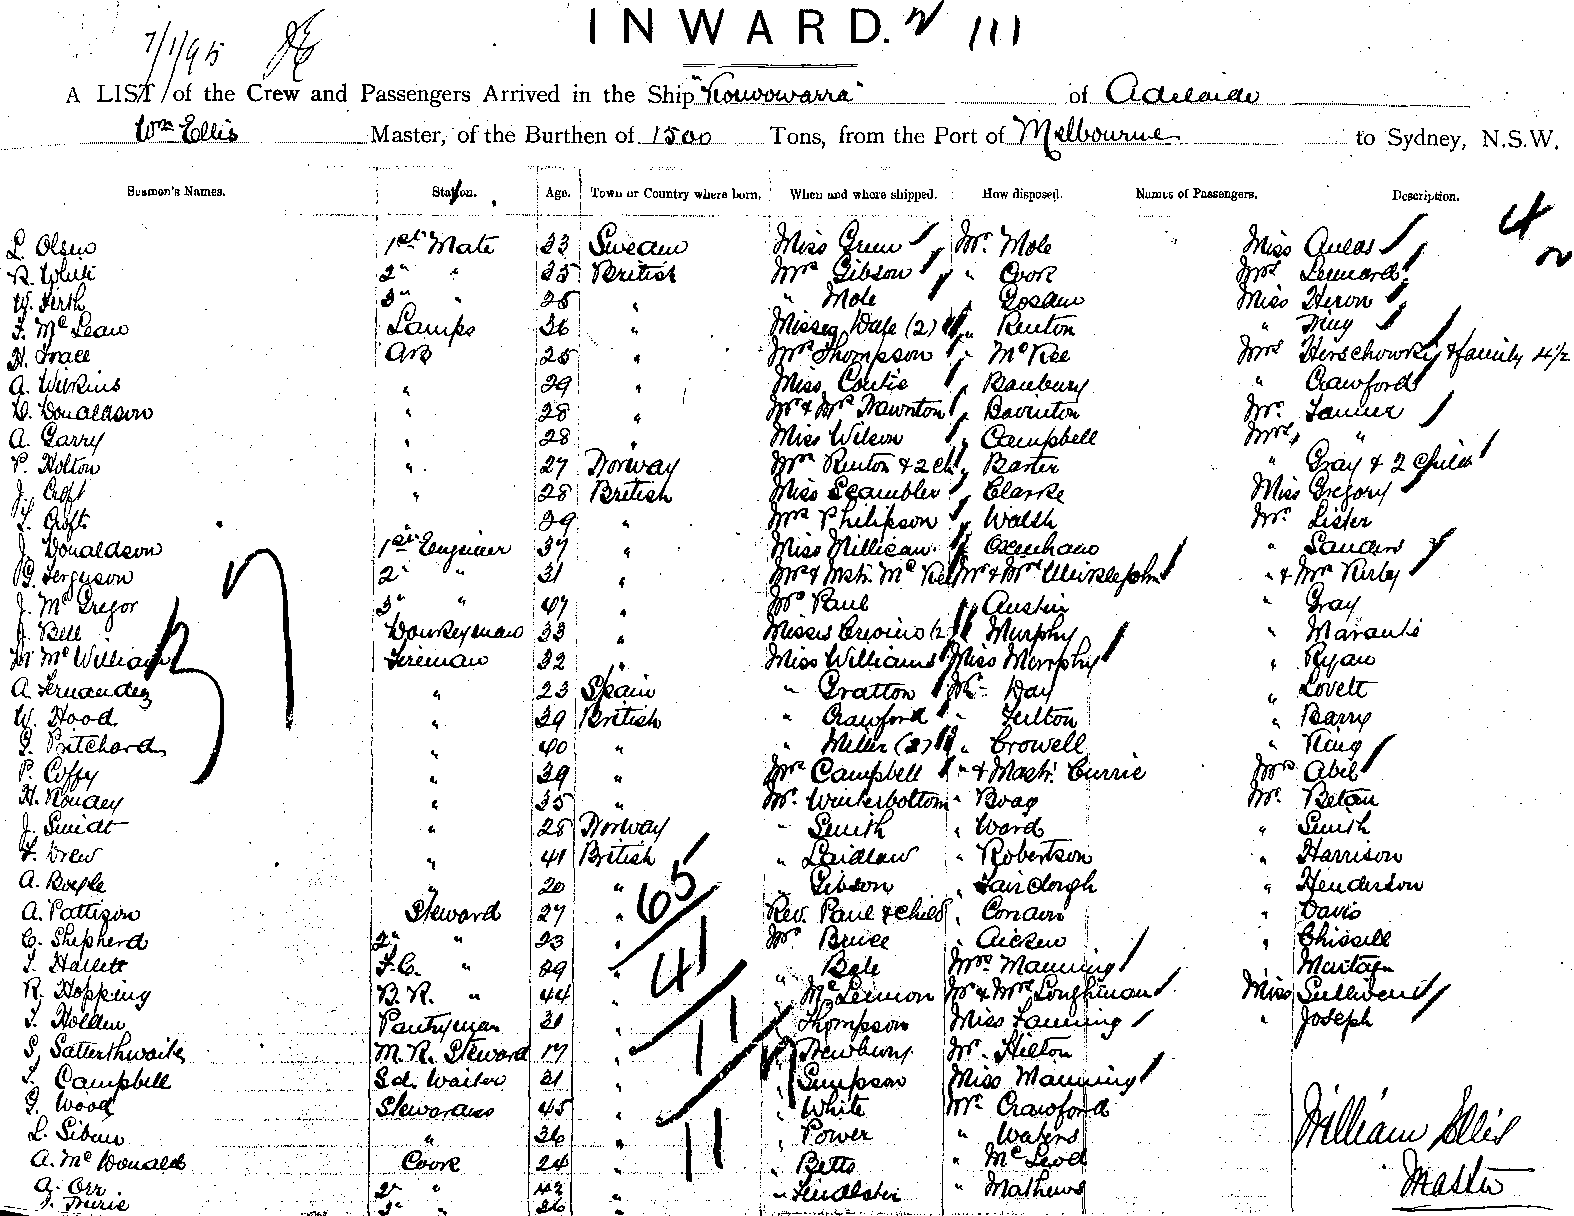 INWARD. 111
7/1/95
A LIST of the Crew and Passengers Arrived in the Ship "Kowowarra" of Adelaide
Wm Ellis Master, of the Burthen of 1500 Tons, from the Port of Melbourne to Sydney, N.S.W.
Seamen's Names. Station. Age. Town or Country where born. When and where shipped. How disposed. Names of Passengers. Description.
L. Olsen 1st Mate 33 Sweden Miss Green Mr. Mole Miss
R. White 2" " 35 British Mrs Gibson " Cook Mrs Lennard
W. Firth 3" " 25 " " Mole " Miss Heron
F. McLean Lamps 36 " Misses Dale (2) " Renton " King
H. Trace AB 25 " Mrs Thompson " McKee Mrs & family 4 1/2
A. Wilkins " 29 " Miss " Banbury " Crawford
D. Donaldson " 28 " Mr & Mrs Dawnton " Mr.
A. Garry " 28 " Miss Wilson " Campbell Mrs. "
P. Holton " 27 Norway Mrs Renton & 2 ch " Baxter " Gray & 2 child
J. Croft " 28 British Miss Scambler " Clarke Miss Gregory
29 " Mrs Philipson " Walsh Mr. Lister
J. Donaldson 1st Engineer 37 " Miss Millican " Oxenham " Sanders
G. Ferguson 2" " 31 " Mr & Mstr. McKee Mr & Mrs Meiklejohn " & Mrs Kirby
J. McGregor 3" " 47 " Mrs Paul " Austin " Gray
J. Bell Donkeyman 33 " Misses (2) " Murphy "
McWilliam Fireman 32 " Miss Williams Miss Murphy " Ryan
A. Fernandez " 23 Spain " Gratton Mr. Day " Lovett
W. Hood " 39 British " Crawford " Fulton " Barry
G. Pritchard " 40 " " Miller (2) " Crowell " King
P. Coffy " 39 " Mrs Campbell " & Mastr. Currie Mrs Abel
H. " 35 " Mr. Winterbottom " Boag Mr.
J. Smidt " 28 Norway " Smith " Ward " Smith
F. Drew " 41 British " Laidlaw " Robertson " Harrison
A. Boyle " 20 " " Gibson " Fairclough " Henderson
A. Pattison Steward 27 " Rev. Paul & child " Condon " Davis
C. Shepherd 2" " 23 " Mr Bruce " Aicken " Chissell
T. Hallett F.C. " 29 " " Mrs Manning "
R. Hopping B.R. " 44 " " McLennon Mr & Mrs Loughman Miss Sullivan
T. Holden Pantryman 31 " " Thompson Miss Fanning " Joseph
S. Satterthwaite M.R. Steward 17 " " Newbury Mr. Hilton
T. Campbell Sd. Waiter 21 " " Simpson Miss Manning
G. Wood Stewardss 45 " " White Mr. Crawford
L. " 36 " " Power " Waters
A. McDonald Cook 24 " " Betts " McLeod
A. Orr 2" " 42 " " " Mathews
3" " 26 "
37
65
41
11
11
William Ellis
Master